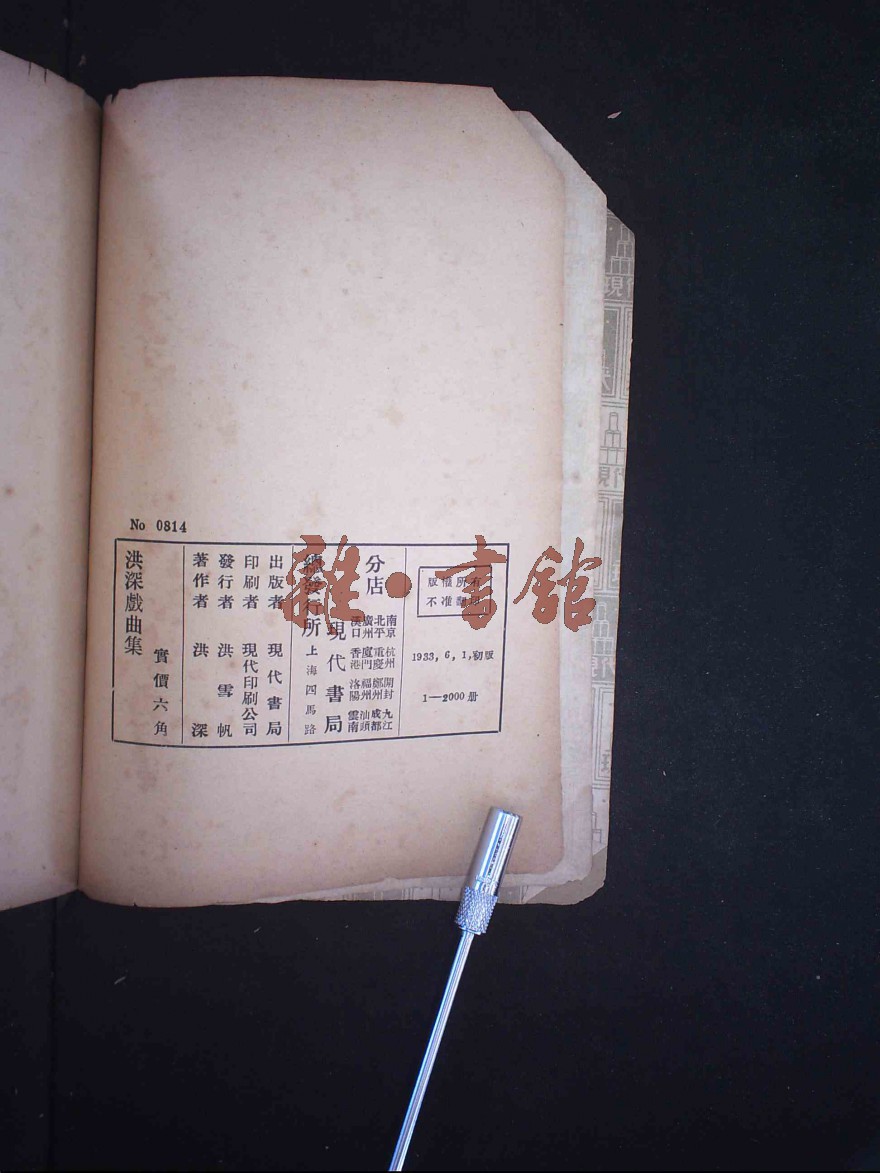 No 0814
版權所有
不准翻印
1933, 6, 1, 初版
1—2000 册
分店
南京 北平 廣州 漢口
杭州 重慶 廈門 香港
開封 鄭州 福州 洛陽
九江 成都 汕頭 雲南
總發行所 現代書局
上海四馬路
出版者 現代書局
印刷者 現代印刷公司
發行者 洪雪帆
著作者 洪深
洪深戲曲集
實價六角
雜·書館
現代